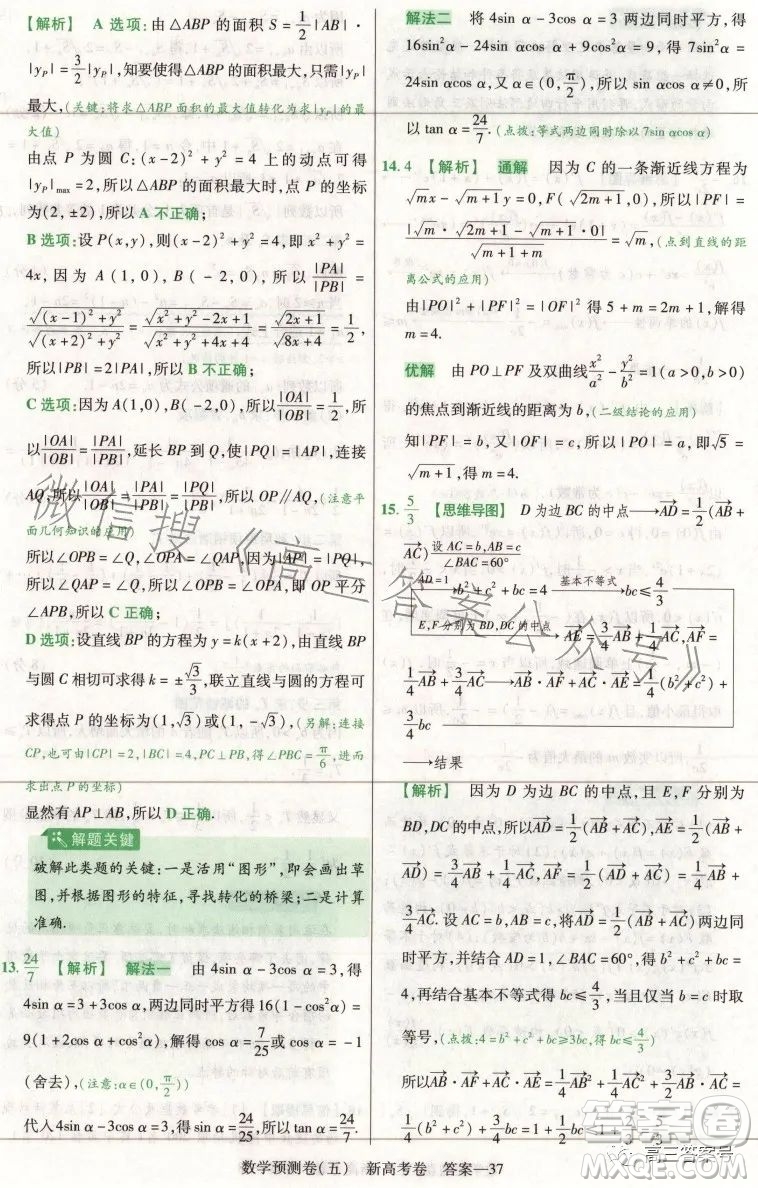 【解析】 A 选项:由△ABP 的面积 S = 1/2 |AB| ·
|y_P| = 3/2 |y_P|,知要使得△ABP 的面积最大,只需|y_P|
最大,(关键:将求△ABP 面积的最大值转化为求|y_P|的最
大值)
由点 P 为圆 C:(x-2)²+y²=4 上的动点可得
|y_P|max=2,所以△ABP 的面积最大时,点 P 的坐标
为(2,±2),所以 A 不正确;
B 选项:设 P(x,y),则(x-2)²+y²=4,即 x²+y²=
4x,因为 A(1,0),B(-2,0),所以 |PA|/|PB| =
√((x-1)²+y²)/√((x+2)²+y²) = √(x²+y²-2x+1)/√(x²+y²+4x+4) = √(2x+1)/√(8x+4) = 1/2,
所以|PB|=2|PA|,所以 B 不正确;
C 选项:因为 A(1,0),B(-2,0),所以 |OA|/|OB| = 1/2,所
以 |OA|/|OB| = |PA|/|PB|,延长 BP 到 Q,使|PQ|=|AP|,连接
AQ,所以 |OA|/|OB| = |PA|/|PB| = |PQ|/|PB|,所以 OP∥AQ,(注意平
面几何知识的应用)
所以∠OPB=∠Q,∠OPA=∠QAP,因为|AP|=|PQ|,
所以∠QAP=∠Q,所以∠OPB=∠OPA,即 OP 平分
∠APB,所以 C 正确;
D 选项:设直线 BP 的方程为 y=k(x+2),由直线 BP
与圆 C 相切可求得 k=±√3/3,联立直线与圆的方程可
求得点 P 的坐标为(1,√3)或(1,-√3),(另解:连接
CP,也可由|CP|=2,|BC|=4,PC⊥PB,得∠PBC=π/6,进而
求出点 P 的坐标)
显然有 AP⊥AB,所以 D 正确.
解题关键
破解此类题的关键:一是活用“图形”,即会画出草
图,并根据图形的特征,寻找转化的桥梁;二是计算
准确.
13. 24/7 【解析】 解法一 由 4sin α-3cos α=3,得
4sin α=3+3cos α,两边同时平方得 16(1-cos²α)=
9(1+2cos α+cos²α),解得 cos α=7/25 或 cos α=-1
(舍去),(注意:α∈(0,π/2))
代入 4sin α-3cos α=3,得 sin α=24/25,所以 tan α=24/7.
解法二 将 4sin α-3cos α=3 两边同时平方,得
16sin²α-24sin αcos α+9cos²α=9,得 7sin²α=
24sin αcos α,又 α∈(0,π/2),所以 sin αcos α≠0,所
以 tan α=24/7.(点拨:等式两边同时除以 7sin αcos α)
14. 4 【解析】 通解 因为 C 的一条渐近线方程为
√m x-√(m+1) y=0,F(√(2m+1),0),所以|PF|=
|√m·√(2m+1)-√(m+1)·0|/√(m+1+m)=√m,(点到直线的距
离公式的应用)
由|PO|²+|PF|²=|OF|²得 5+m=2m+1,解得
m=4.
优解 由 PO⊥PF 及双曲线 x²/a²-y²/b²=1(a>0,b>0)
的焦点到渐近线的距离为 b,(二级结论的应用)
知|PF|=b,又|OF|=c,所以|PO|=a,即√5=
√(m+1),得 m=4.
15. 5/3 【思维导图】 D 为边 BC 的中点→AD=1/2(AB+
AC) 设 AC=b,AB=c ∠BAC=60°
AD=1→b²+c²+bc=4 基本不等式→bc≤4/3
E,F分别为 BD,DC 的中点→AE=3/4AB+1/4AC,AF=
1/4AB+3/4AC→AB·AF+AC·AE=1/4(b²+c²)+
3/4bc
→结果
【解析】 因为 D 为边 BC 的中点,且 E,F 分别为
BD,DC 的中点,所以AD=1/2(AB+AC),AE=1/2(AB+
AD)=3/4AB+1/4AC,AF=1/2(AC+AD)=1/4AB+
3/4AC.设 AC=b,AB=c,将AD=1/2(AB+AC)两边同
时平方,并结合 AD=1,∠BAC=60°,得 b²+c²+bc=
4,再结合基本不等式得 bc≤4/3,当且仅当 b=c 时取
等号,(点拨:4=b²+c²+bc≥3bc,得 bc≤4/3)
所以AB·AF+AC·AE=1/4AB²+3/4AB·AC+
1/4AC²+3/4AB·AC=1/4(b²+c²)+
数学预测卷(五) 新高考卷 答案—37
微信搜《高三答案公众号》
答案圈
高三答案号